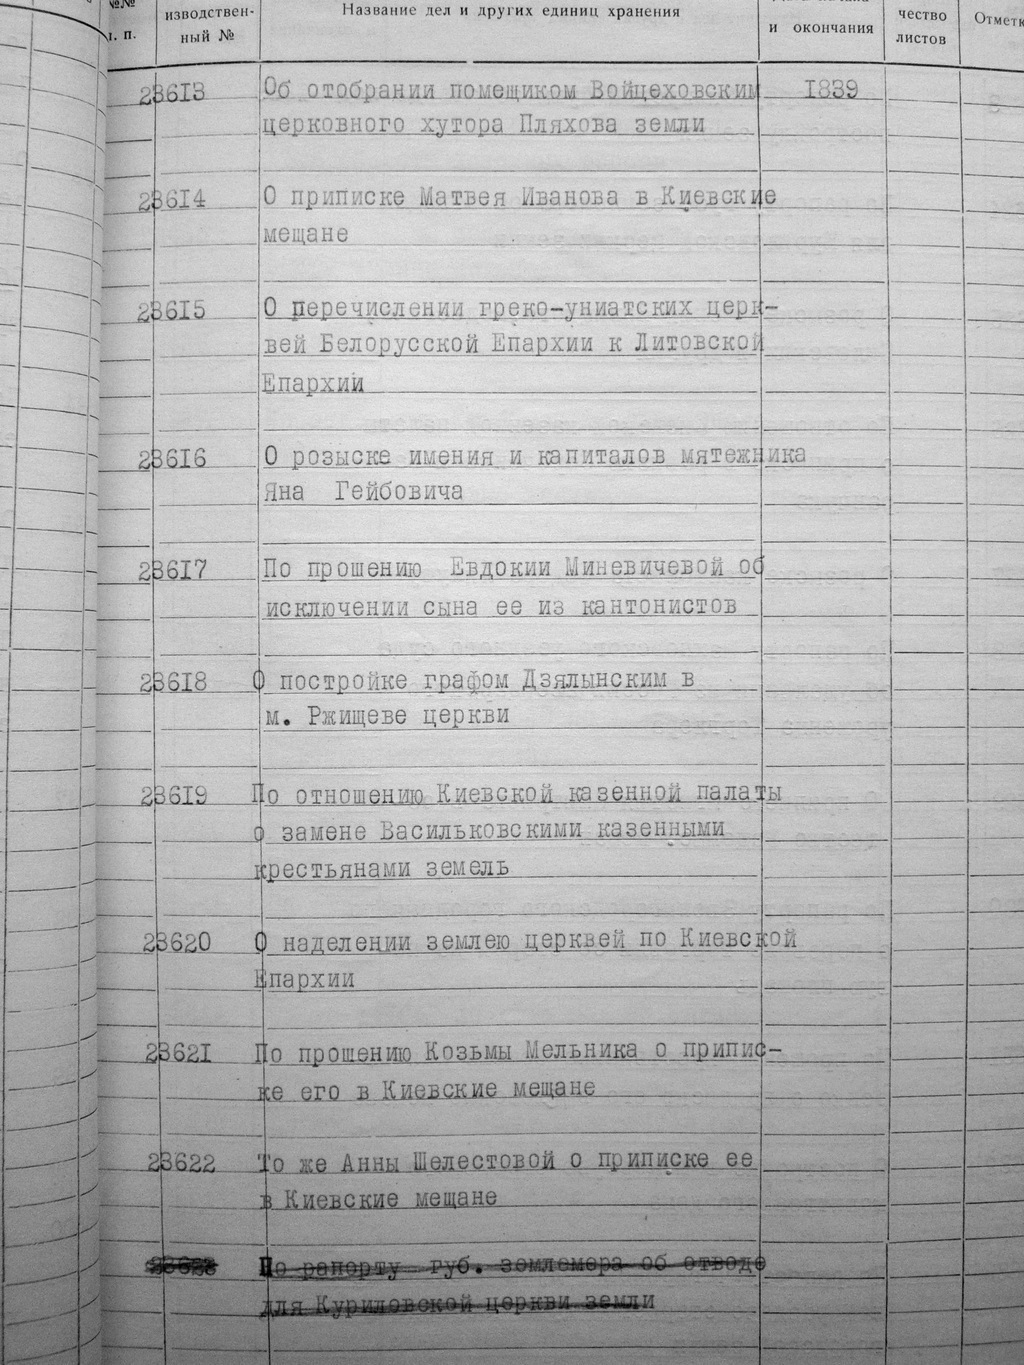 №№
изводствен- Название дел и других единиц хранения чество Отметк
п. п. ный № и окончания листов
23613 Об отобрании помещиком Войцеховским 1839
церковного хутора Пляхова земли
23614 О приписке Матвея Иванова в Киевские
мещане
23615 О перечислении греко-униатских церк-
вей Белорусской Епархии к Литовской
Епархии
23616 О розыске имения и капиталов мятежника
Яна Гейбовича
23617 По прошению Евдокии Миневичевой об
исключении сына ее из кантонистов
23618 О постройке графом Дзялынским в
м. Ржищеве церкви
23619 По отношению Киевской казенной палаты
о замене Васильковскими казенными
крестьянами земель
23620 О наделении землею церквей по Киевской
Епархии
23621 По прошению Козьмы Мельника о припис-
ке его в Киевские мещане
23622 То же Анны Шелестовой о приписке ее
в Киевские мещане
23623 По рапорту губ. землемера об отводе
для Куриловской церкви земли